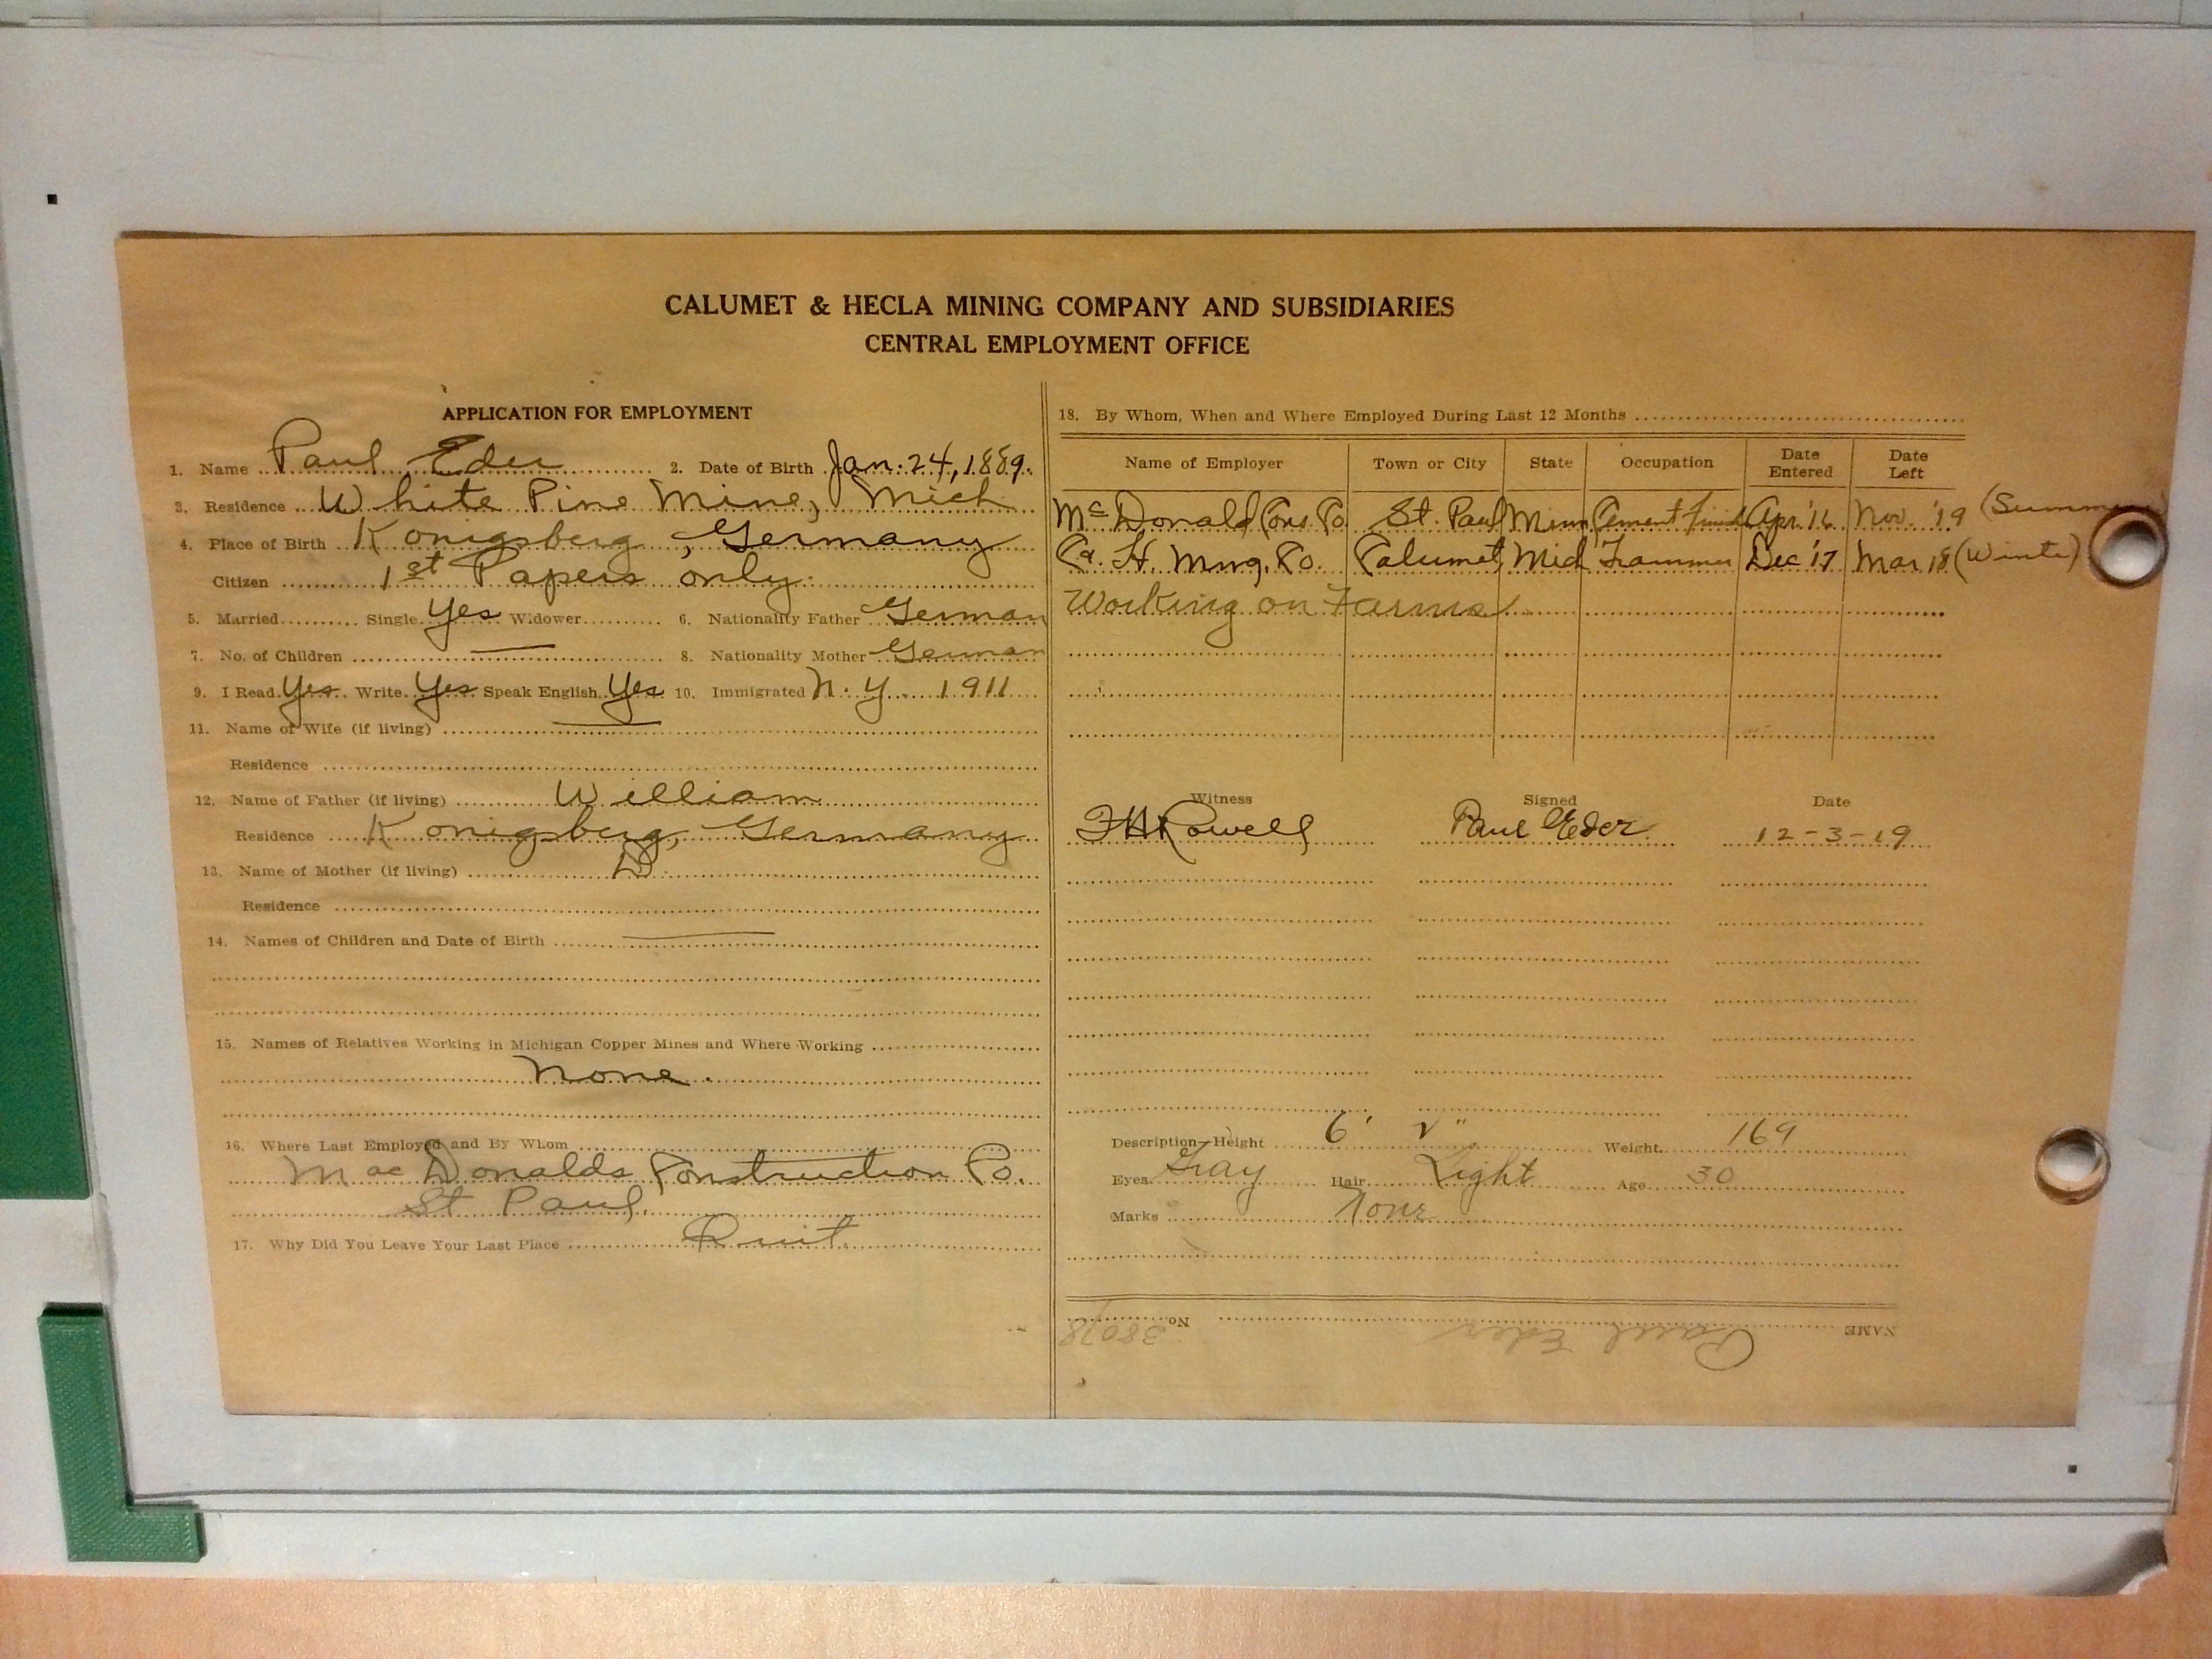 CALUMET & HECLA MINING COMPANY AND SUBSIDIARIES
CENTRAL EMPLOYMENT OFFICE
APPLICATION FOR EMPLOYMENT
1. Name Paul Eder 2. Date of Birth Jan. 24, 1889.
3. Residence White Pine Mine, Mich
4. Place of Birth Konigsberg, Germany
Citizen 1st Papers only.
5. Married Single Yes Widower 6. Nationality Father German
7. No. of Children 8. Nationality Mother German
9. I Read Yes Write Yes Speak English Yes 10. Immigrated N.Y. 1911
11. Name of Wife (if living)
Residence
12. Name of Father (if living) William
Residence Konigsberg, Germany
13. Name of Mother (if living) D
Residence
14. Names of Children and Date of Birth
15. Names of Relatives Working in Michigan Copper Mines and Where Working
None.
16. Where Last Employed and By Whom
Mac Donalds Construction Co.
St Paul.
17. Why Did You Leave Your Last Place Quit
18. By Whom, When and Where Employed During Last 12 Months
Name of Employer Town or City State Occupation Date Entered Date Left
Mc Donald Cons. Co. St. Paul Minn Cement Apr. '16 Nov. '19 (Summer)
C. & H. Mng. Co. Calumet Mich Trammer Dec '17 Mar 18 (Winter)
Working on Farms
Witness Signed Date
F H Rowell Paul Eder 12-3-19
Description—Height 6' 2" Weight 169
Eyes Gray Hair Light Age 30
Marks None
NAME Paul Eder No. 38078